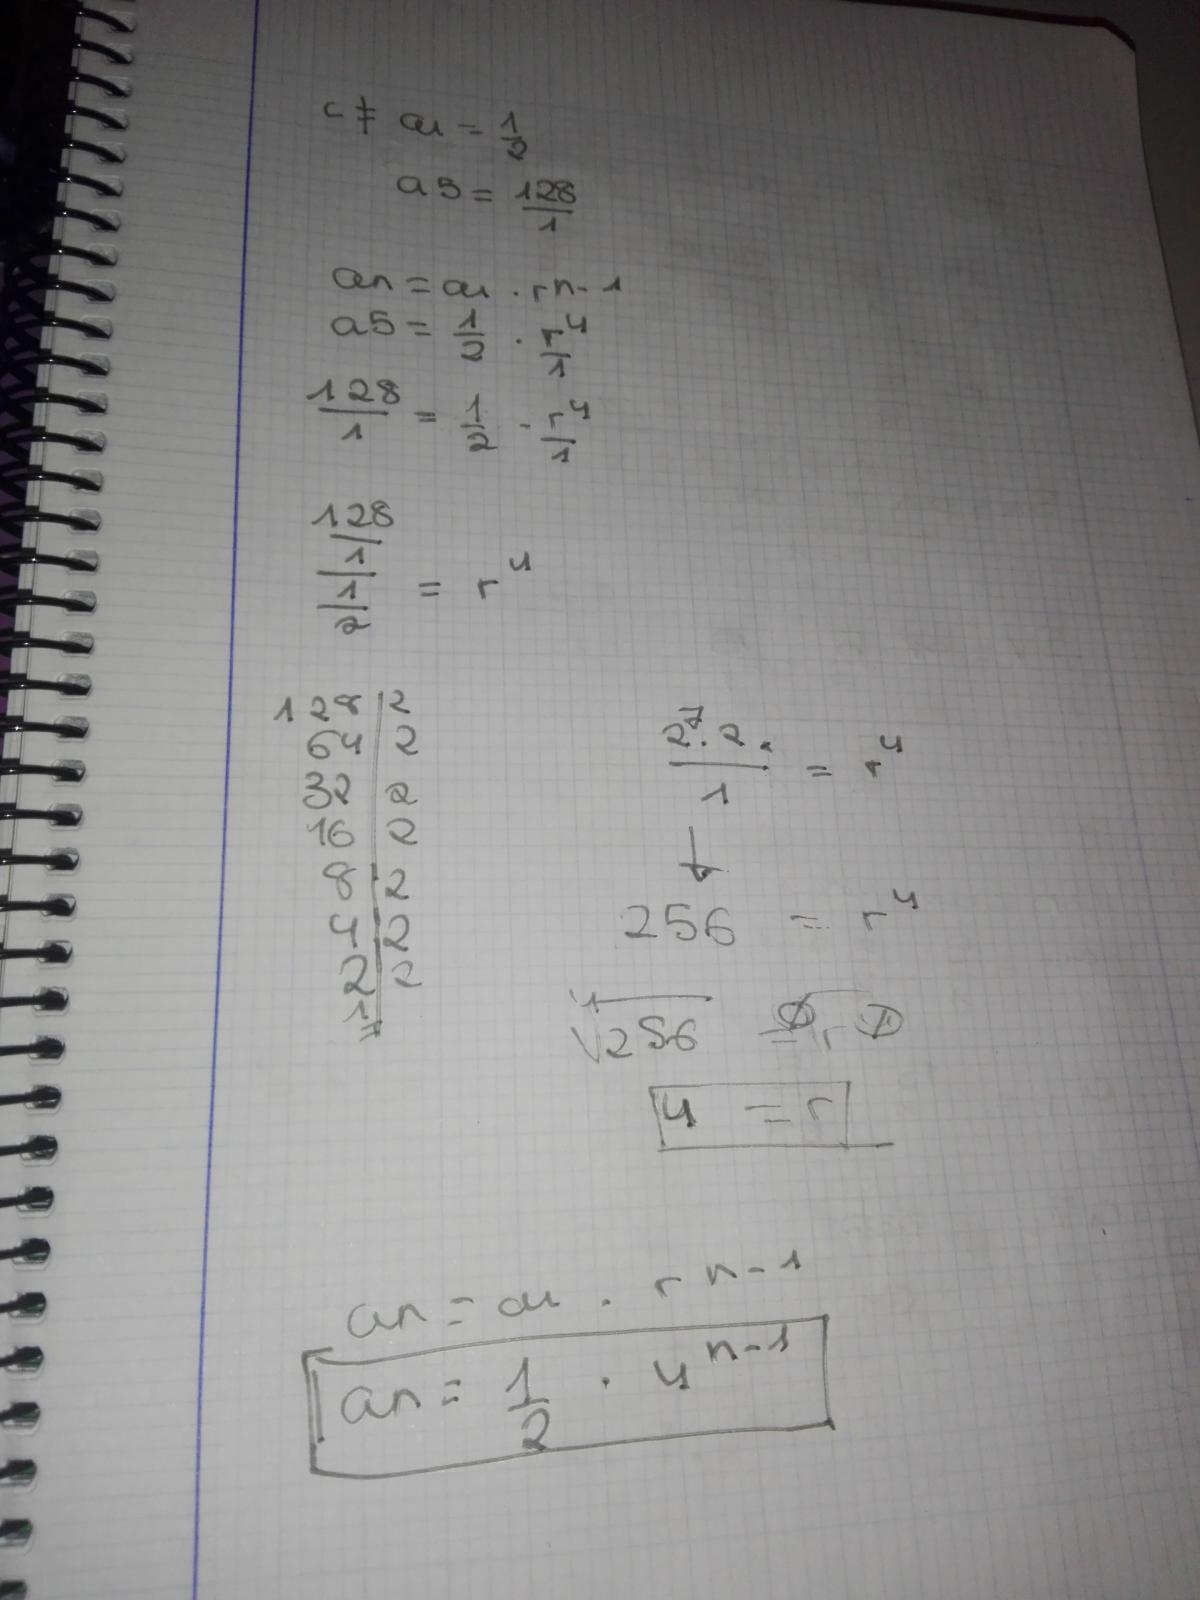 c≠ a1 = 1/2
a5 = 128/1
an = a1 · r n-1
a5 = 1/2 · r^4/1
128/1 = 1/2 · r^4/1
128/1/1/2 = r^4
128 | 2
64 | 2
32 | 2
16 | 2
8 | 2
4 | 2
2 | 2
1
2^7 · 2 / 1 = r^4
256 = r^4
√256 = r
4 = r
an = a1 · r^n-1
an = 1/2 · 4^n-1